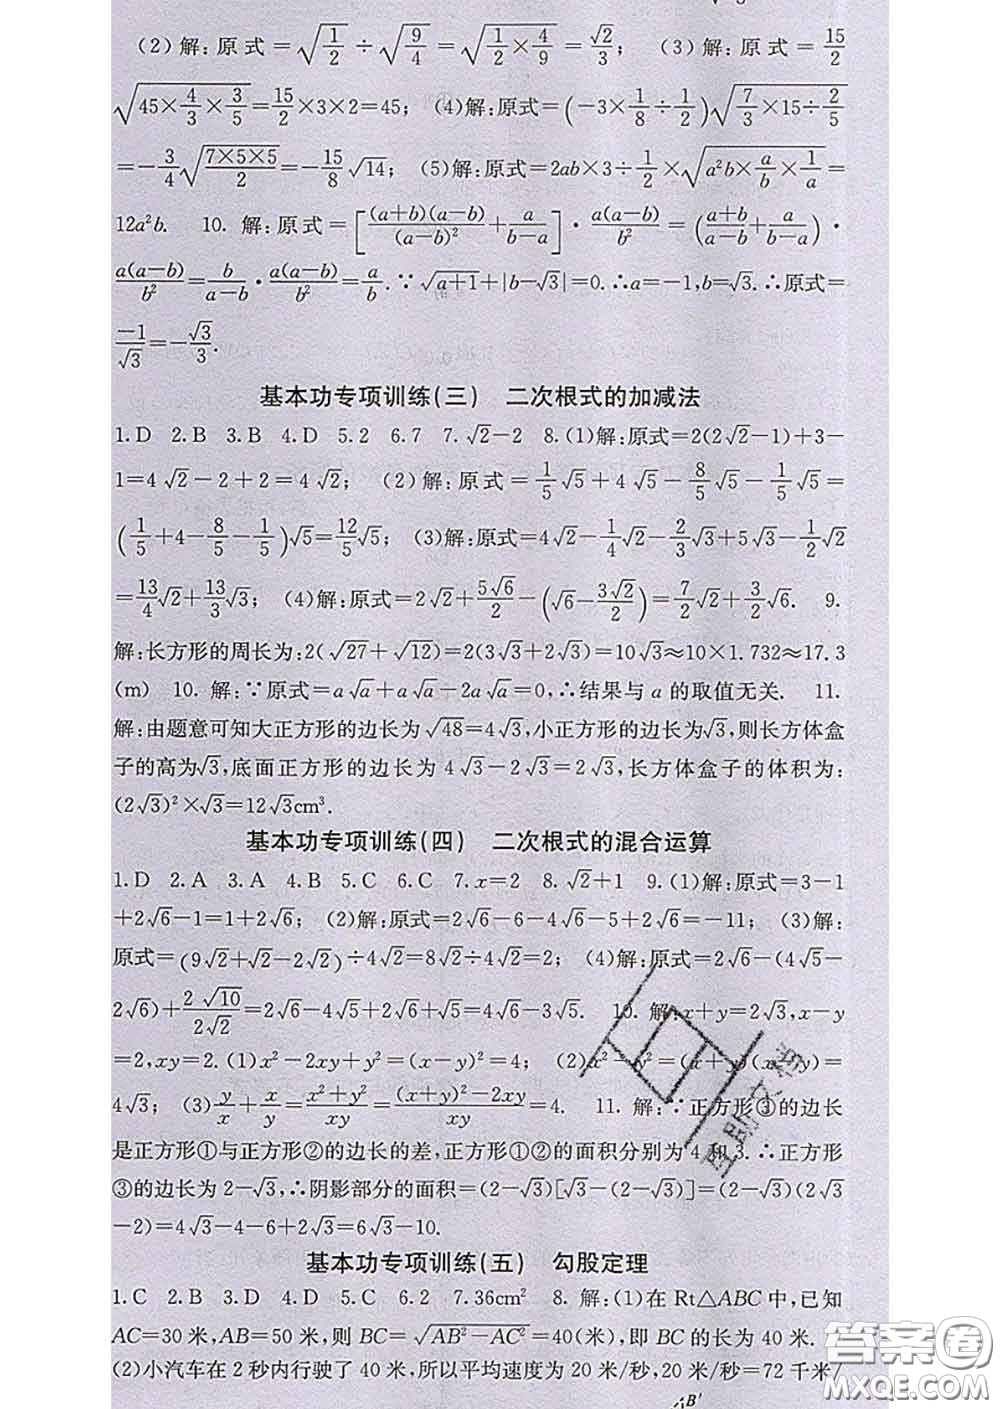 (2)解:原式=√(1/2)÷√(9/4)=√(1/2×4/9)=√2/3; (3)解:原式=15/2
√(45×4/3×3/5)=15/2×3×2=45; (4)解:原式=(-3×1/8÷1/2)√(7/3×15÷2/5)
=-3/4√(7×5×5/2)=-15/8√14; (5)解:原式=2ab×3÷1/2×√(a²b×a/b×1/a)=
12a²b. 10. 解:原式=[(a+b)(a-b)/(a-b)²+a/(b-a)]·a(a-b)/b²=((a+b)/(a-b)+a/(b-a))·
a(a-b)/b²=b/(a-b)·a(a-b)/b²=a/b.∵√(a+1)+|b-√3|=0.∴a=-1,b=√3.∴原式=
-1/√3=-√3/3.
基本功专项训练(三) 二次根式的加减法
1.D 2.B 3.B 4.D 5.2 6.7 7.√2-2 8.(1)解:原式=2(2√2-1)+3-
1=4√2-2+2=4√2; (2)解:原式=1/5√5+4√5-8/5√5-1/5√5
=(1/5+4-8/5-1/5)√5=12/5√5; (3)解:原式=4√2-1/4√2-2/3√3+5√3-1/2√2
=13/4√2+13/3√3; (4)解:原式=2√2+5√6/2-(√6-3√2/2)=7/2√2+3/2√6. 9.
解:长方形的周长为:2(√27+√12)=2(3√3+2√3)=10√3≈10×1.732≈17.3
(m) 10. 解:∵原式=a√a+a√a-2a√a=0,∴结果与a的取值无关. 11.
解:由题意可知大正方形的边长为√48=4√3,小正方形的边长为√3,则长方体盒
子的高为√3,底面正方形的边长为4√3-2√3=2√3,长方体盒子的体积为:
(2√3)²×√3=12√3cm³.
基本功专项训练(四) 二次根式的混合运算
1.D 2.A 3.A 4.B 5.C 6.C 7.x=2 8.√2+1 9.(1)解:原式=3-1
+2√6-1=1+2√6; (2)解:原式=2√6-6-4√6-5+2√6=-11; (3)解:
原式=(9√2+√2-2√2)÷4√2=8√2÷4√2=2; (4)解:原式=2√6-(4√5-
2√6)+2√10/2√2=2√6-4√5+2√6+√5=4√6-3√5. 10. 解:x+y=2√3,x-y
=2,xy=2.(1)x²-2xy+y²=(x-y)²=4; (2)x²-y²=(x+y)(x-y)=
4√3; (3)y/x+x/y=(x²+y²)/xy=((x+y)²-2xy)/xy=4. 11. 解:∵正方形③的边长
是正方形①与正方形②的边长的差,正方形①②的面积分别为4和3.∴正方形
③的边长为2-√3,∴阴影部分的面积=(2-√3)[√3-(2-√3)]=(2-√3)(2√3
-2)=4√3-4-6+2√3=6√3-10.
基本功专项训练(五) 勾股定理
1.C 2.B 3.D 4.D 5.C 6.2 7.36cm² 8. 解:(1)在Rt△ABC中,已知
AC=30米,AB=50米,则BC=√(AB²-AC²)=40(米),即BC的长为40米.
(2)小汽车在2秒内行驶了40米,所以平均速度为20米/秒,20米/秒=72千米/
B′
答案圈
MXQE.COM